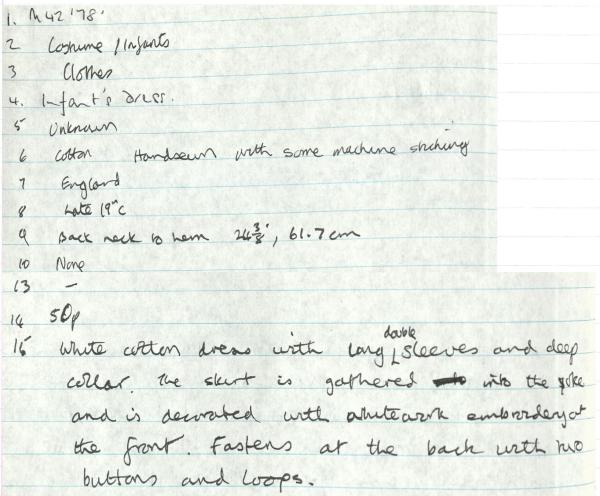 1. M42 '78.
2 Costume / Infants
3 Clothes
4. Infant's dress.
5 Unknown
6 Cotton Handsewn with some machine stiching
7 England
8 Late 19th C
9 Back neck to hem 24 3/8", 61.7cm
10 None
13 -
14 50p
15 White cotton dress with long double sleeves and deep
collar. The skirt is gathered into the yoke
and is decorated with whitework embroidery at
the front. Fastens at the back with two
buttons and loops.